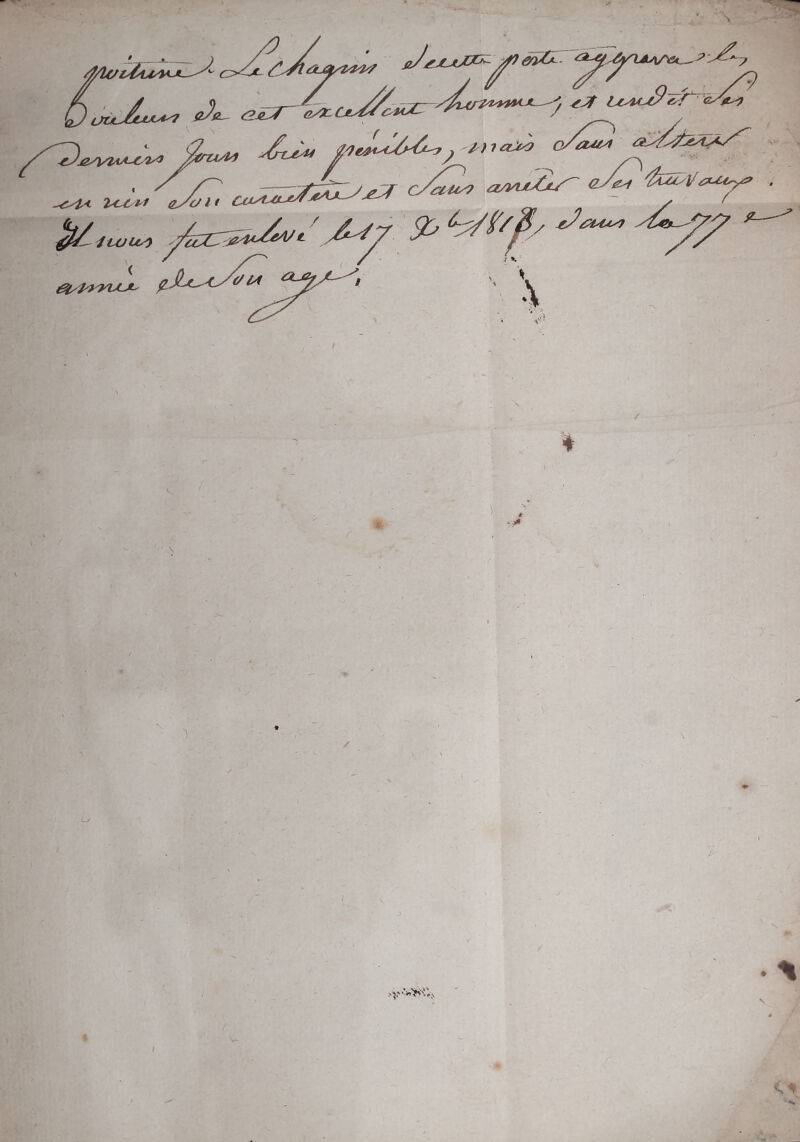 poitrine. Le chagrin de cette perte aggrava les
Douleurs de cet excellent homme, et rendit Ses
Derniers Jours bien pénibles, mais Sans alterer
en rien Son caractère et Sans arrêter Ses travaux.
Il nous fut enlevé le 17 Xbre 1818, dans la 77e
année de Son age.